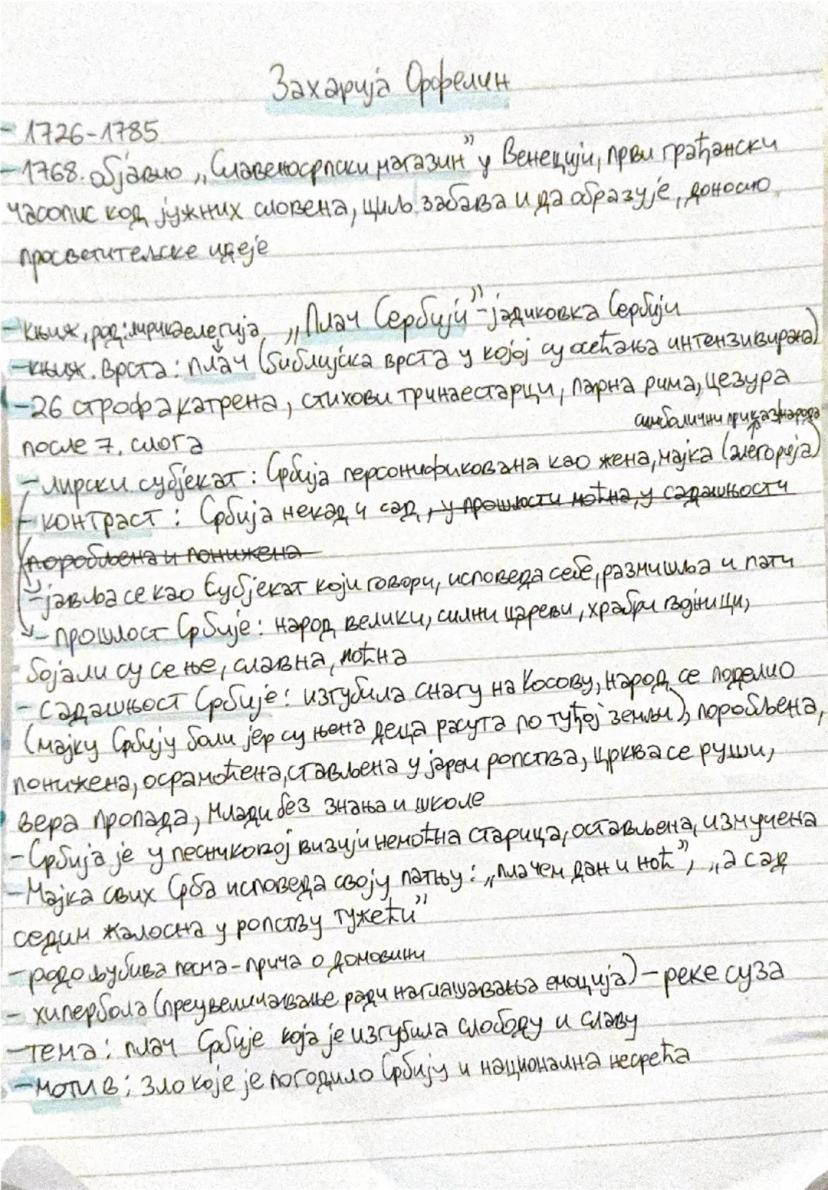 Захарија Орфелин
- 1726-1785
- 1768. објавио „Славеносрпски магазин” у Венецији, први грађански
часопис код јужних словена, циљ забава и да образује, доносио
просветитељске идеје
- књиж. род: лирика елегија, „Плач Сербији” - јадиковка Сербији
- књиж. врста: плач (библијска врста у којој су осећања интензивирана)
- 26 строфа катрена, стихови тринаестарци, парна рима, цезура
после 7. слога
симболични приказ народа
- лирски субјекат: Србија персонификована као жена, мајка (алегорија)
- контраст: Србија некад и сад, у прошлости моћна, у садашњости
поробљена и понижена
- јавља се као субјекат који говори, исповеда себе, размишља и пати
- прошлост Србије: народ велики, силни цареви, храбри војници,
бојали су се ње, славна, моћна
- садашњост Србије: изгубила снагу на Косову, народ се поделио
(мајку Србију боли јер су њена деца расута по туђој земљи), поробљена,
понижена, осрамоћена, стављена у јарем ропства, црква се руши,
вера пропада, млади без знања и школе
- Србија је у песниковој визији немоћна старица, остављена, измучена
- Мајка свих Срба исповеда своју патњу: „плачем дан и ноћ”, „а сад
седим жалосна у ропству тужећи”
- родољубива песма - прича о домовини
- хипербола (преувеличавање ради наглашавања емоција) - реке суза
- тема: плач Србије која је изгубила слободу и славу
- мотив: зло које је погодило Србију и национална несрећа